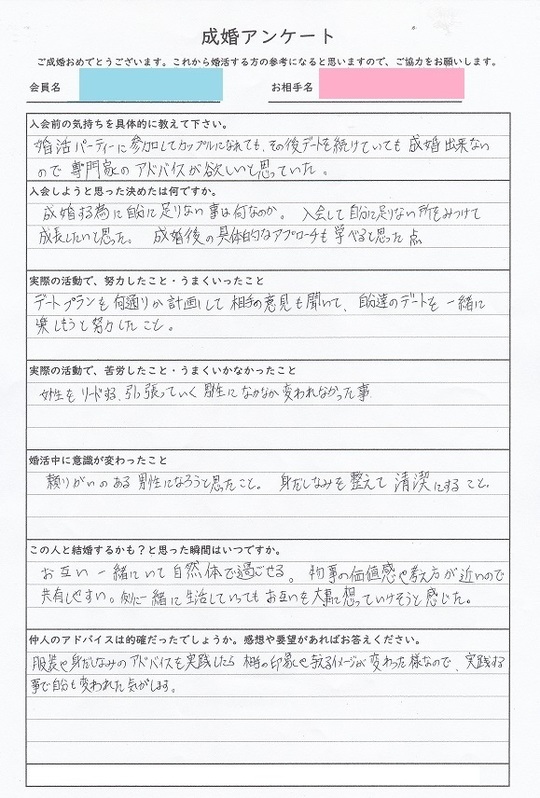 成婚アンケート
ご成婚おめでとうございます。これから婚活する方の参考になると思いますので、ご協力をお願いします。
会員名 お相手名
入会前の気持ちを具体的に教えて下さい。
婚活パーティーに参加してカップルになれても、その後デートを続けていても 成婚出来ない
ので 専門家のアドバイスが欲しいと思っていた。
入会しようと思った決めたは何ですか。
成婚する為に自分に足りない事は何なのか。 入会して自分に足りない所をみつけて
成長したいと思った。 成婚後の具体的なアプローチも学べると思った点
実際の活動で、努力したこと・うまくいったこと
デートプランを何通りか計画して相手の意見も聞いて、自分達のデートを一緒に
楽しもうと努力したこと。
実際の活動で、苦労したこと・うまくいかなかったこと
女性をリードする、引っ張っていく男性になかなか変われなかった事
婚活中に意識が変わったこと
頼りがいのある男性になろうと思ったこと。 身だしなみを整えて清潔にすること。
この人と結婚するかも？と思った瞬間はいつですか。
お互い一緒にいて自然体で過ごせる。 物事の価値感や考え方が近いので
共有しやすい。 仮に一緒に生活していってもお互いを大事に想っていけそうと感じた。
仲人のアドバイスは的確だったでしょうか。感想や要望があればお答えください。
服装や身だしなみのアドバイスを実践したら 相手の印象や与えるイメージが変わった様なので、実践する
事で自分も変われた気がします。